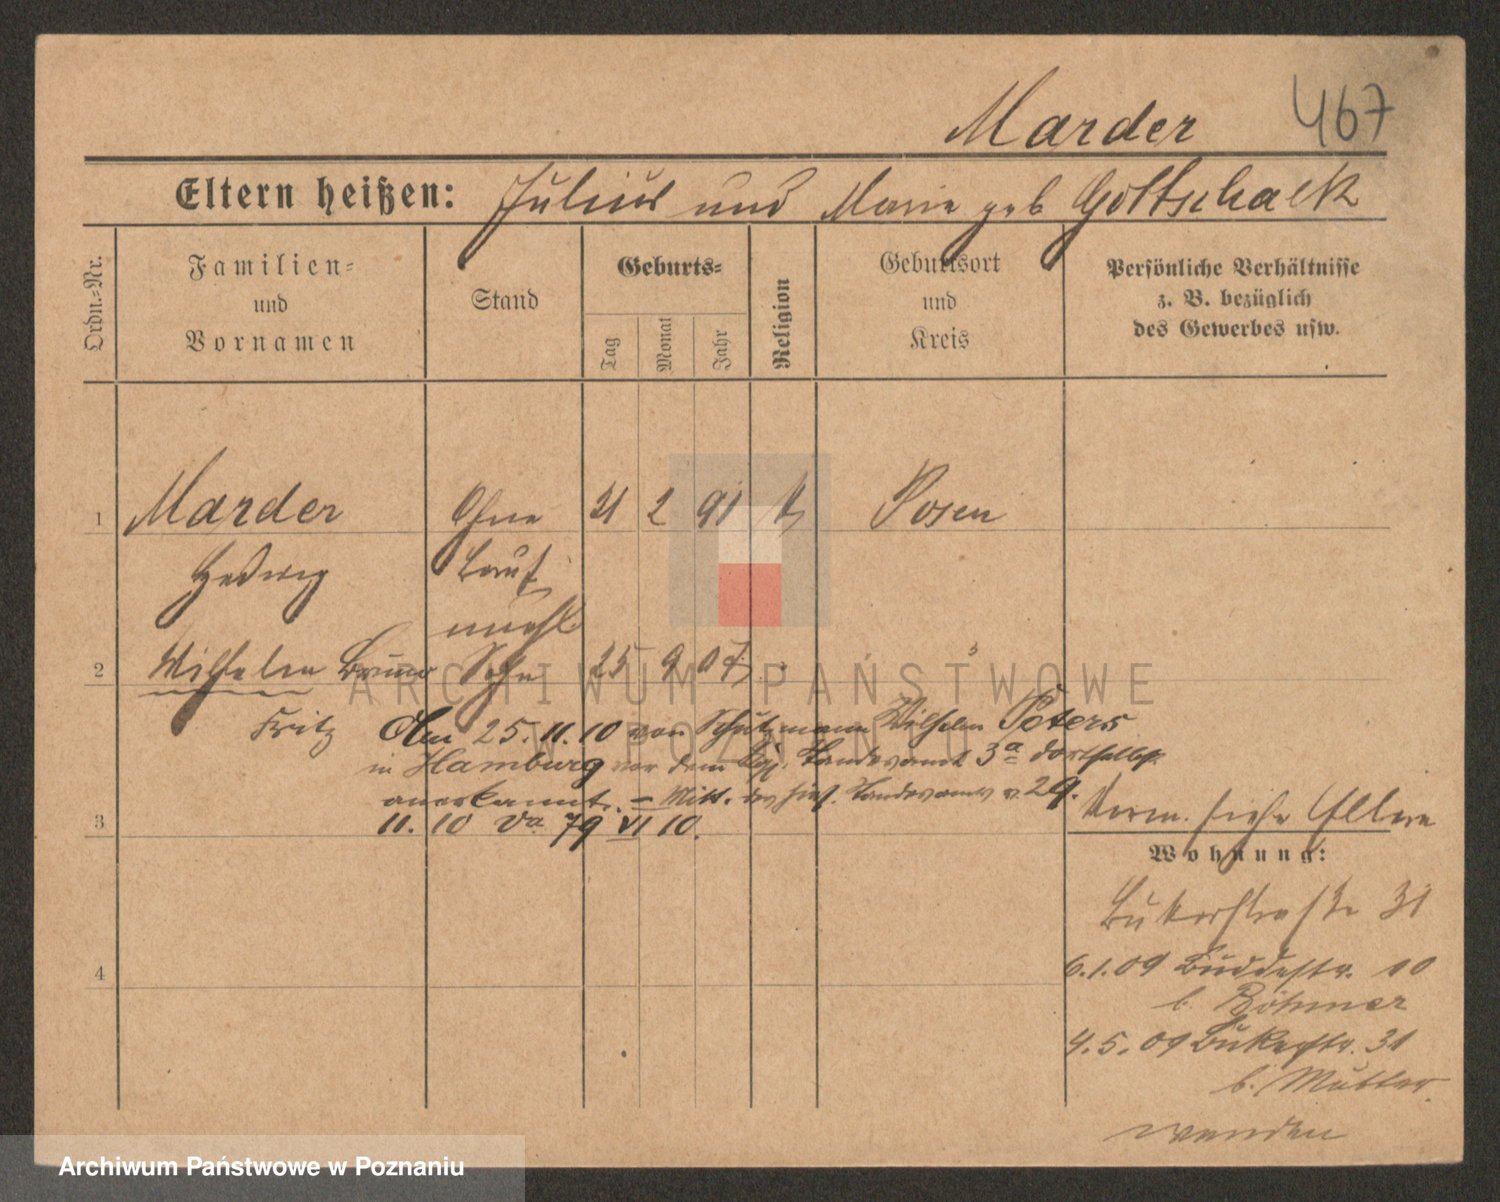 Marder 467
Eltern heißen: Julius und Marie geb Gottschalk
Ordn.-Nr.
Familien-
und
Vornamen
Stand
Geburts-
Tag
Monat
Jahr
Religion
Geburtsort
und
Kreis
Persönliche Verhältnisse
z. B. bezüglich
des Gewerbes usw.
1 Marder Ohne 21 2 91 k Posen
Hedwig Beruf
unehl
2 Wilhelm Bruno Sohn 25 9 07 "
Fritz Am 25.11.10 von Schutzmann Wilhelm Peters
in Hamburg vor dem Standesamt 3a dortselbst
anerkannt. – Mitt. des hies. Standesamts v. 29.
3 11. 10 79 VI 10.
Vorm. siehe Eltern
Wohnung:
Bukerstraße 31
6.1.09 Buddestr. 10
b. Böhmer
4.5.09 Bukerstr. 31
b. Mutter.
wenden
4
ARCHIWUM PAŃSTWOWE
W POZNANIU
Archiwum Państwowe w Poznaniu